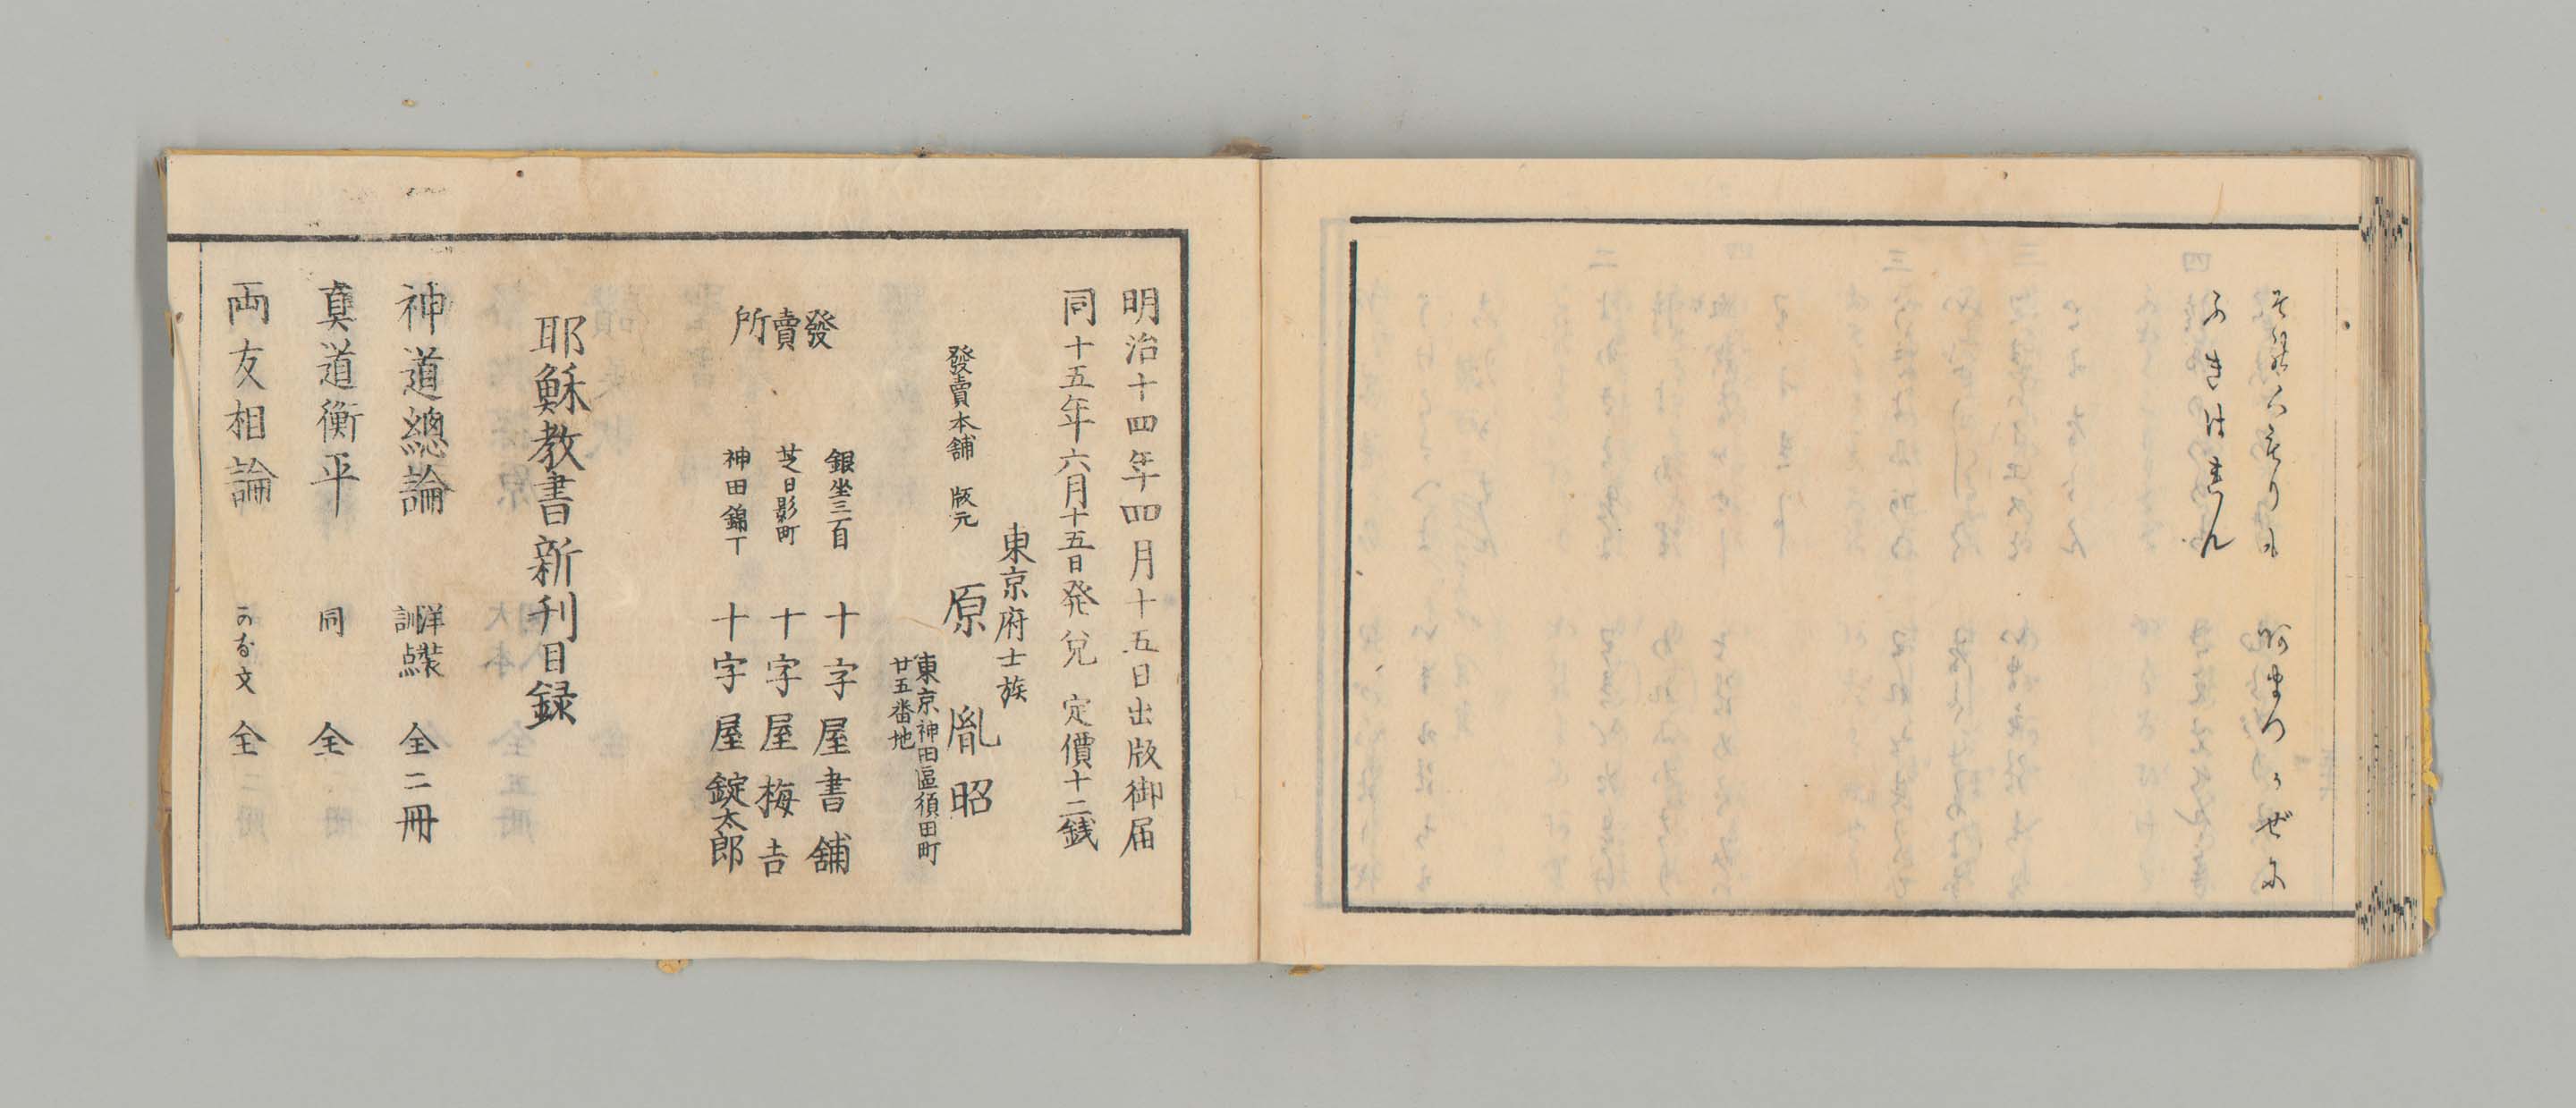 くもりも　阿まつかぜに
ふきはれん
明治十四年四月十五日出版御届
同十五年六月十五日発兌　定價十二銭
東京府士族
發賣本舗　版元　原　胤昭
東京神田區須田町
廿五番地
發賣所
銀坐三百　十字屋書舗
芝日影町　十字屋梅吉
神田錦丁　十字屋錠太郎
耶穌教書新刊目録
神道總論　洋装訓点　全二冊
真道衡平　同　全
両友相論　かな文　全